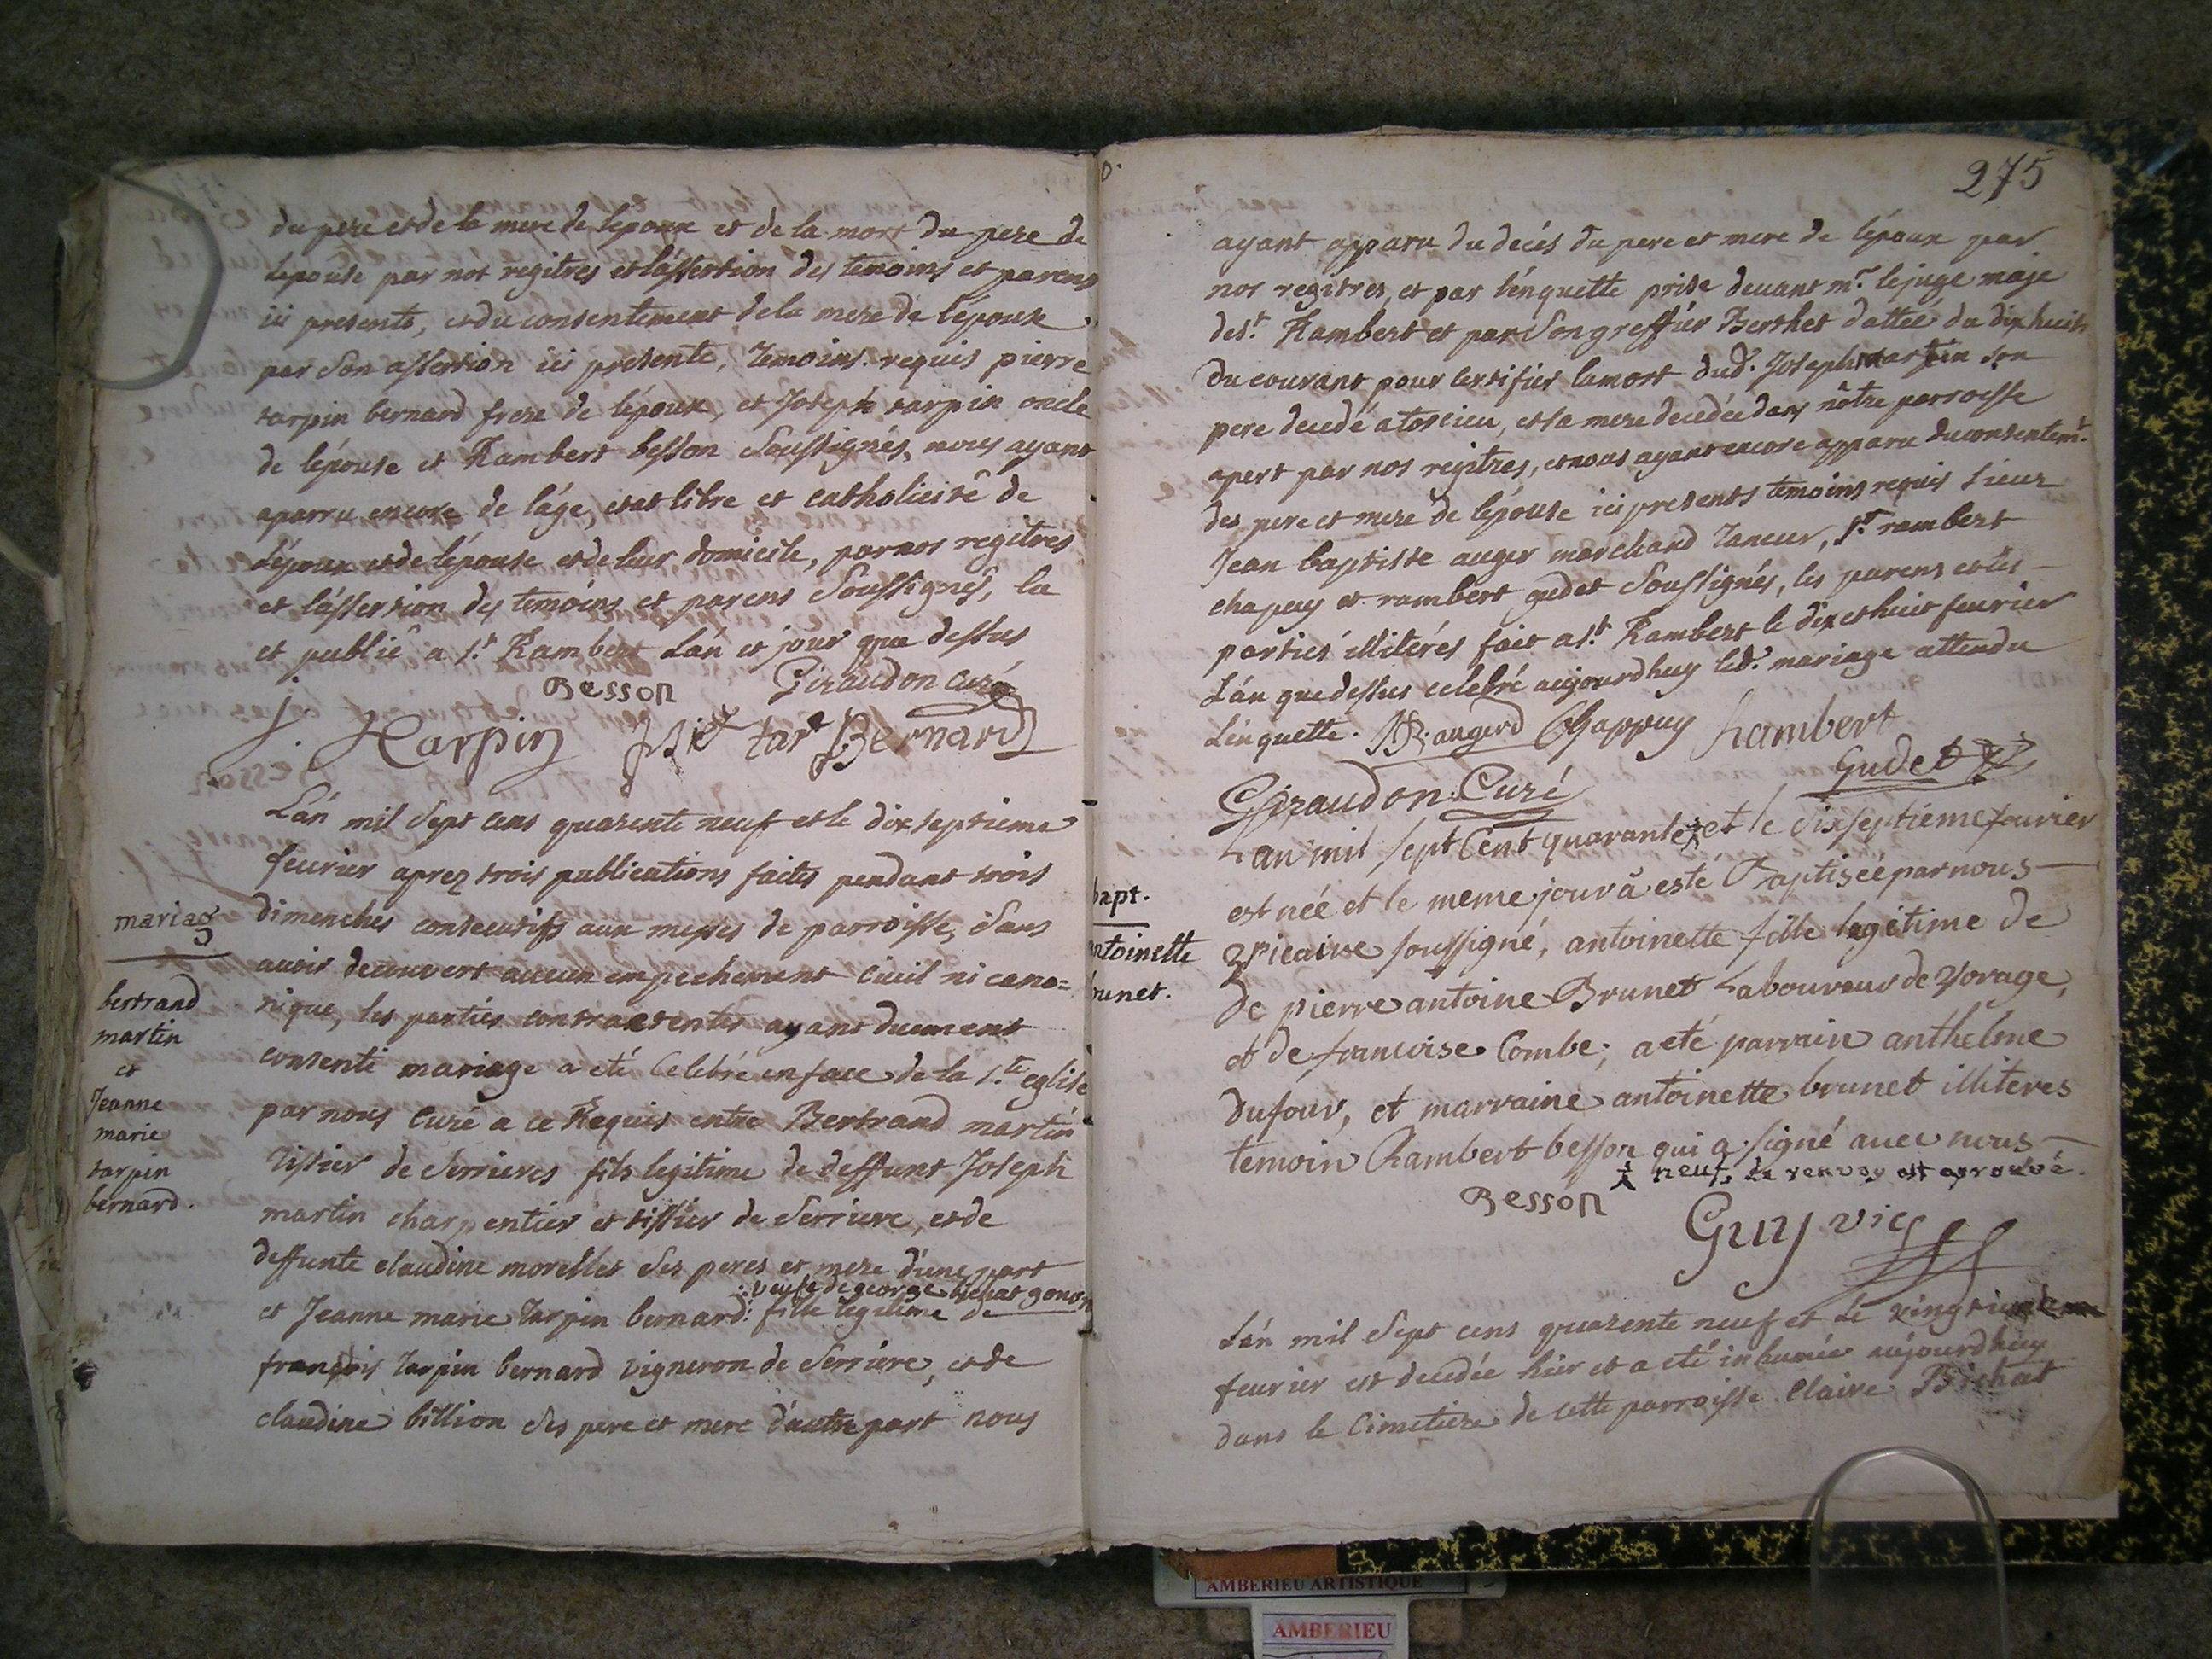 du pere et de la mere de lépoux et de la mort du pere de
lepouse par nos regitres et lássertion des temoins et parens
ici presents, et du consentement de la mere de lépouse
par son assertion ici presente, temoins requis pierre
tarpin bernard frere de lépoux, et Joseph tarpin oncle
de lépouse et Rambert besson soussignés, nous ayant
aparru encore de láge, etat libre et catholicité de
lépoux et de lépouse et de leur domicile, par nos regitres
et lássertion des temoins et parens soussignés, lu
et publié a St. Rambert Lán et jour que dessus
Besson Giraudon curé
j. tarpin tar Bernard
Lán mil sept cens quarente neuf et le dixseptieme
feurier aprez trois publications faites pendant trois
dimenches consecutifs aux messes de parroisse, sans
auoir decouuert aucun empechement ciuil ni cano=
nique, les parties contractentes ayant duement
consenti mariage a eté Celebré en face de la Ste. eglise
par nous Curé a ce Requis entre Bertrand martin
tissier de serrieres fils legitime de deffunt Joseph
martin charpentier et tissier de serriere, et de
deffunte claudine morellet ses peres et mere d'une part
veufe de george bichat gonon
et Jeanne marie tarpin bernard: fille legitime de
françois tarpin bernard vigneron de serriere, et de
claudine billion ses pere et mere d'autre part nous
mariag
bertrand
martin
et
Jeanne
marie
tarpin
bernard.
275
ayant apparu du decés du pere et mere de lépoux par
nos regitres, et par lénquette prise deuant mr. le juge maje
de St. Rambert et par son greffier Berthet dattée du dixhuit
du courant pour certifier la mort dud. Joseph martin son
pere decedé a torcieu, et sa mere decedée dans nôtre parroisse
apert par nos regitres, et nous ayant encore apparu du consentemt.
des pere et mere de lépouse ici presents temoins requis sieur
Jean baptiste auger marchand taneur, St. rambert
chapuy et rambert gudet soussignés, les parens et les
parties illiterés fait a St. Rambert le dix et huit feurier
Lán que dessus celebré aujourdhuy led. mariage attendu
Lénquette. augerd Chappuy Rambert
Gudet
Giraudon Curé
Lan mil sept Cent quarante et le dixseptieme feurier
est neé et le meme jour à esté Baptiseé par nous
vicaire soussigné, antoinette fille legitime de
de pierre antoine Brunet Laboureur de vorage,
et de francoise Combe; a eté parrain anthelme
dufour, et marraine antoinette brunet illiteres
temoin Rambert besson qui a signé auec nous
neuf, le renvoy est aprouvé.
Besson
Guy vic
bapt.
antoinette
brunet.
Lán mil sept cens quarente neuf et le vingtieme
feurier est decedée hier et a eté inhumée aujourdhuy
dans le Cimetiere de cette parroisse Claire Bichat
AMBERIEU ARTISTIQUE
AMBERIEU